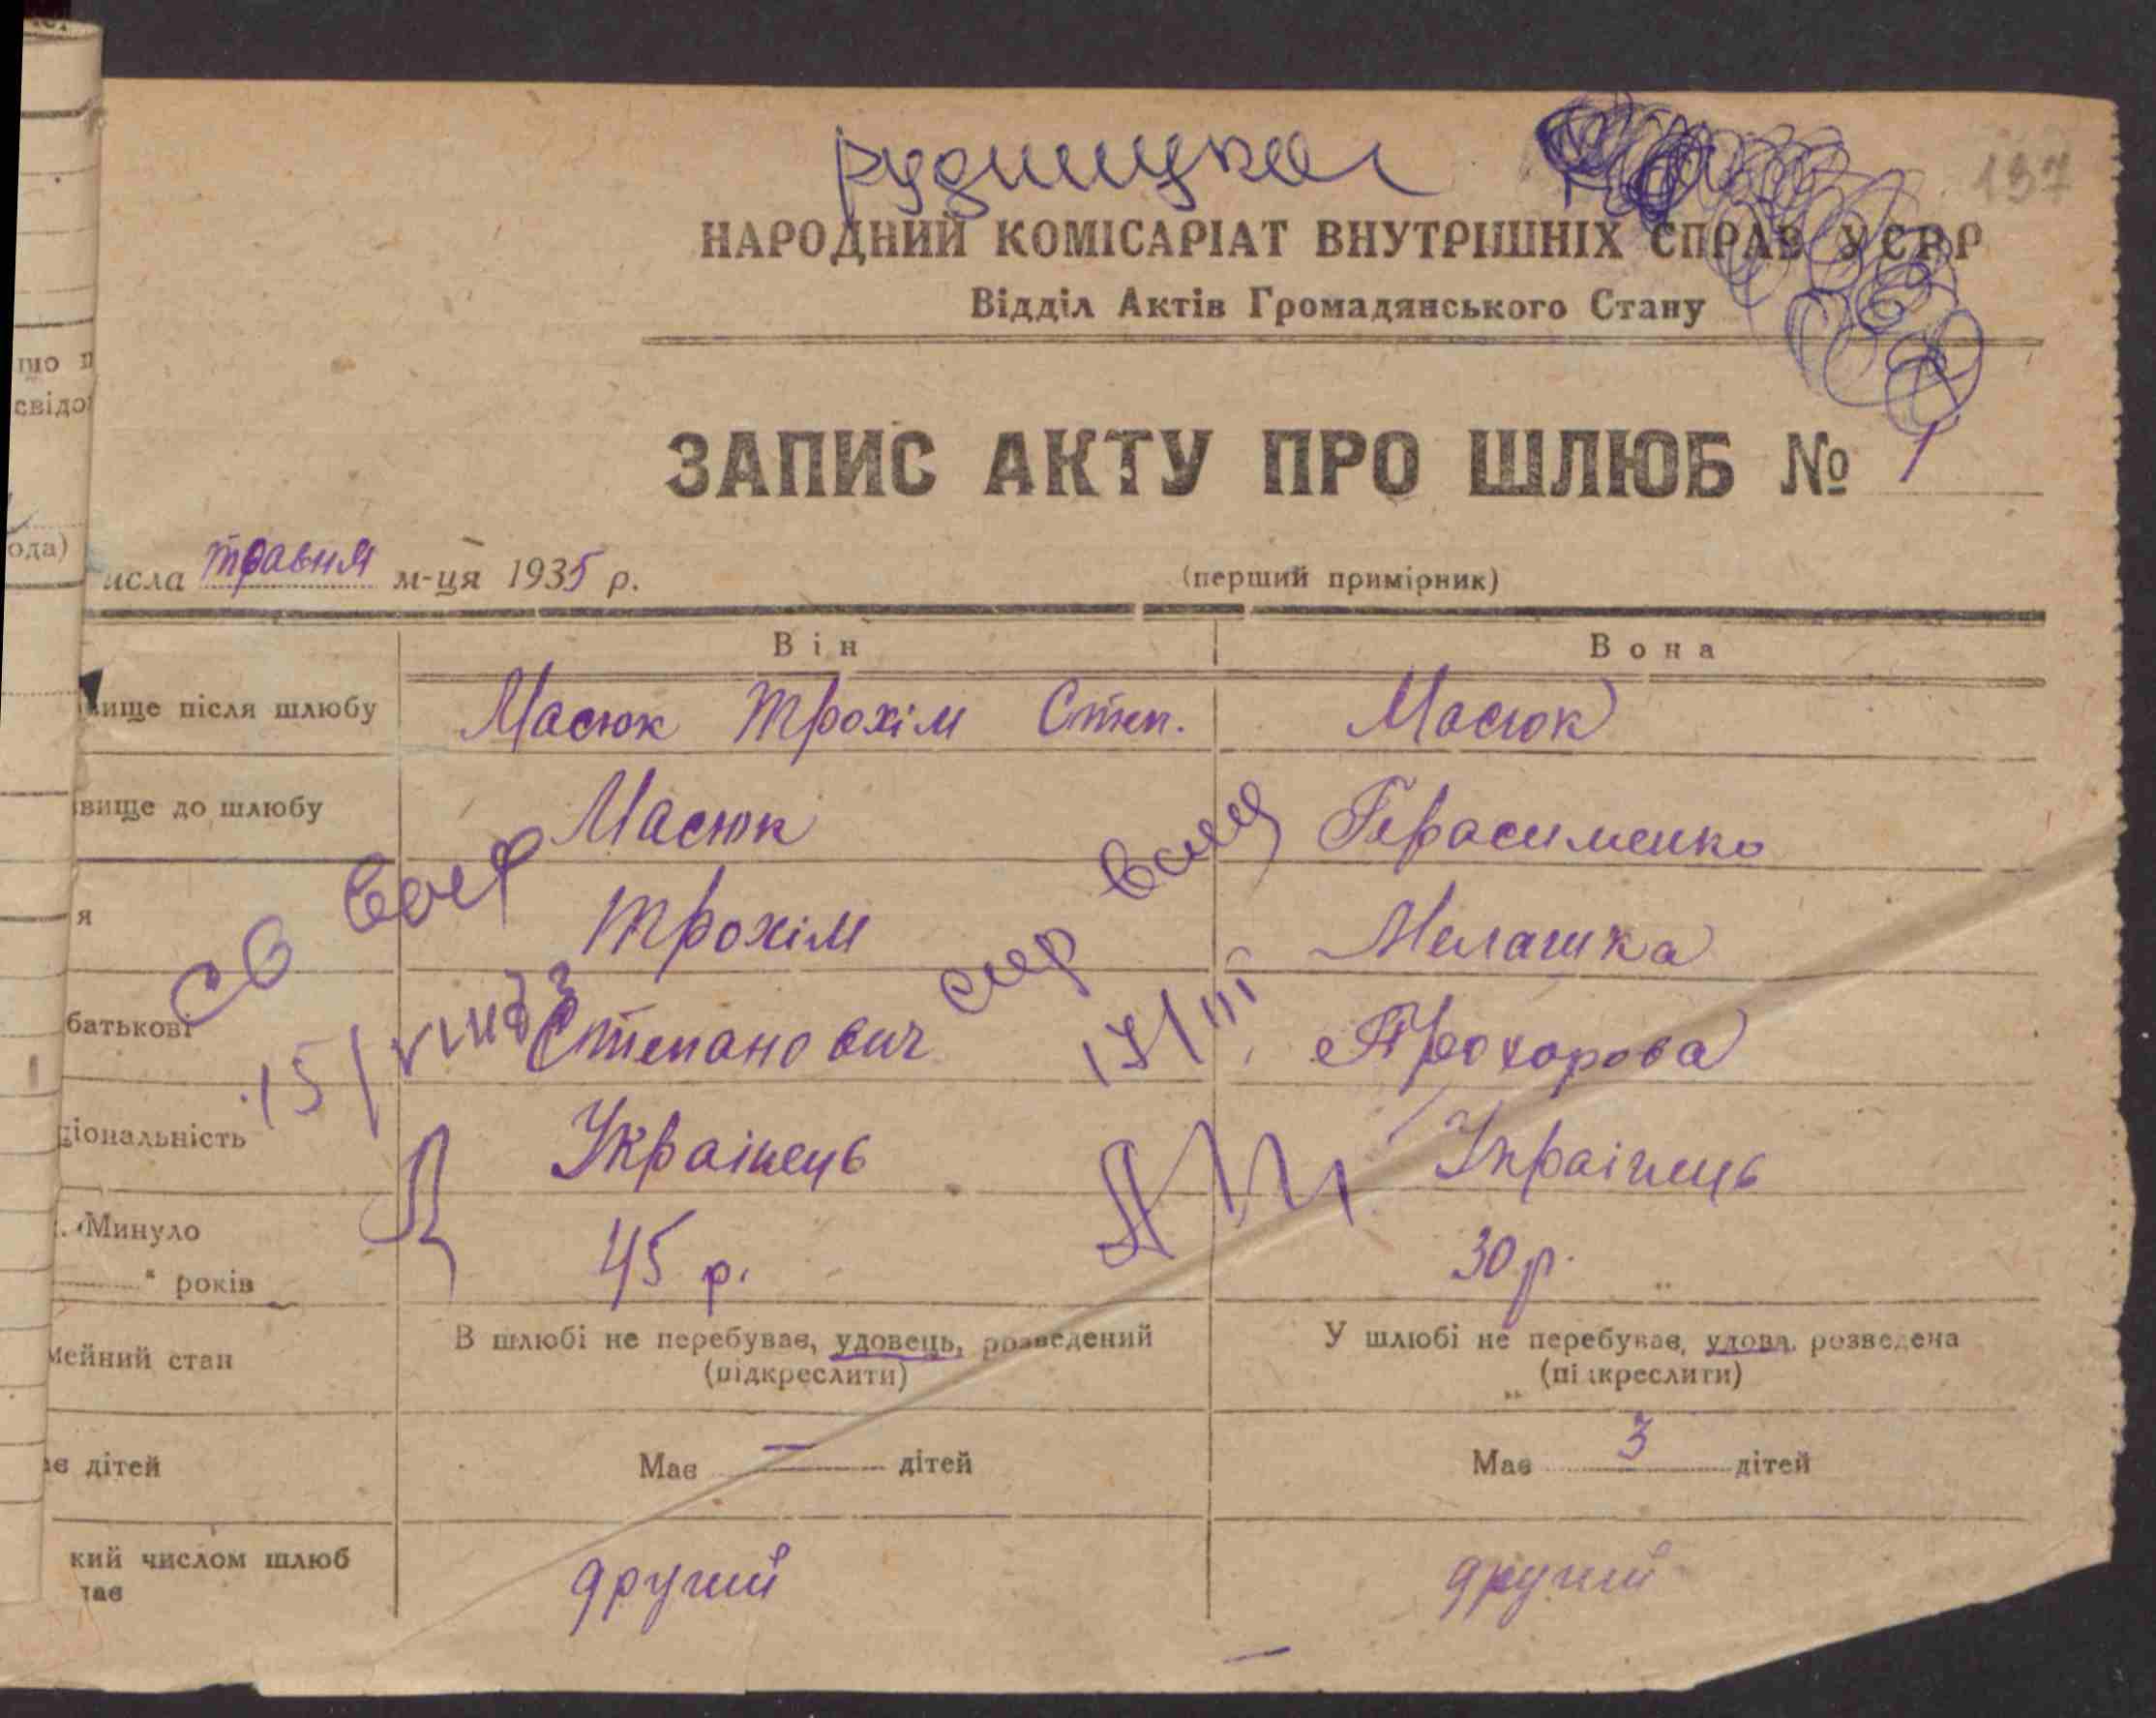 рудницкая
137
НАРОДНИЙ КОМІСАРІАТ ВНУТРІШНІХ СПРАВ УСРР
Відділ Актів Громадянського Стану
ЗАПИС АКТУ ПРО ШЛЮБ № 1
исла травня м-ця 1935 р. (перший примірник)
Він Вона
вище після шлюбу Масюк Трохім Степ. Масюк
вище до шлюбу Масюк Герасименко
я Трохім Мелашка
батькові Степанович Прохорова
ціональність Українець Українець
Минуло
" років 45 р. 30 р.
мейний стан В шлюбі не перебуває, удовець, розведений У шлюбі не перебуває, удова, розведена
(підкреслити) (підкреслити)
ає дітей Має — дітей Має 3 дітей
кий числом шлюб
дає другий другий
що п
свідо
ода)
св
15/
17/III